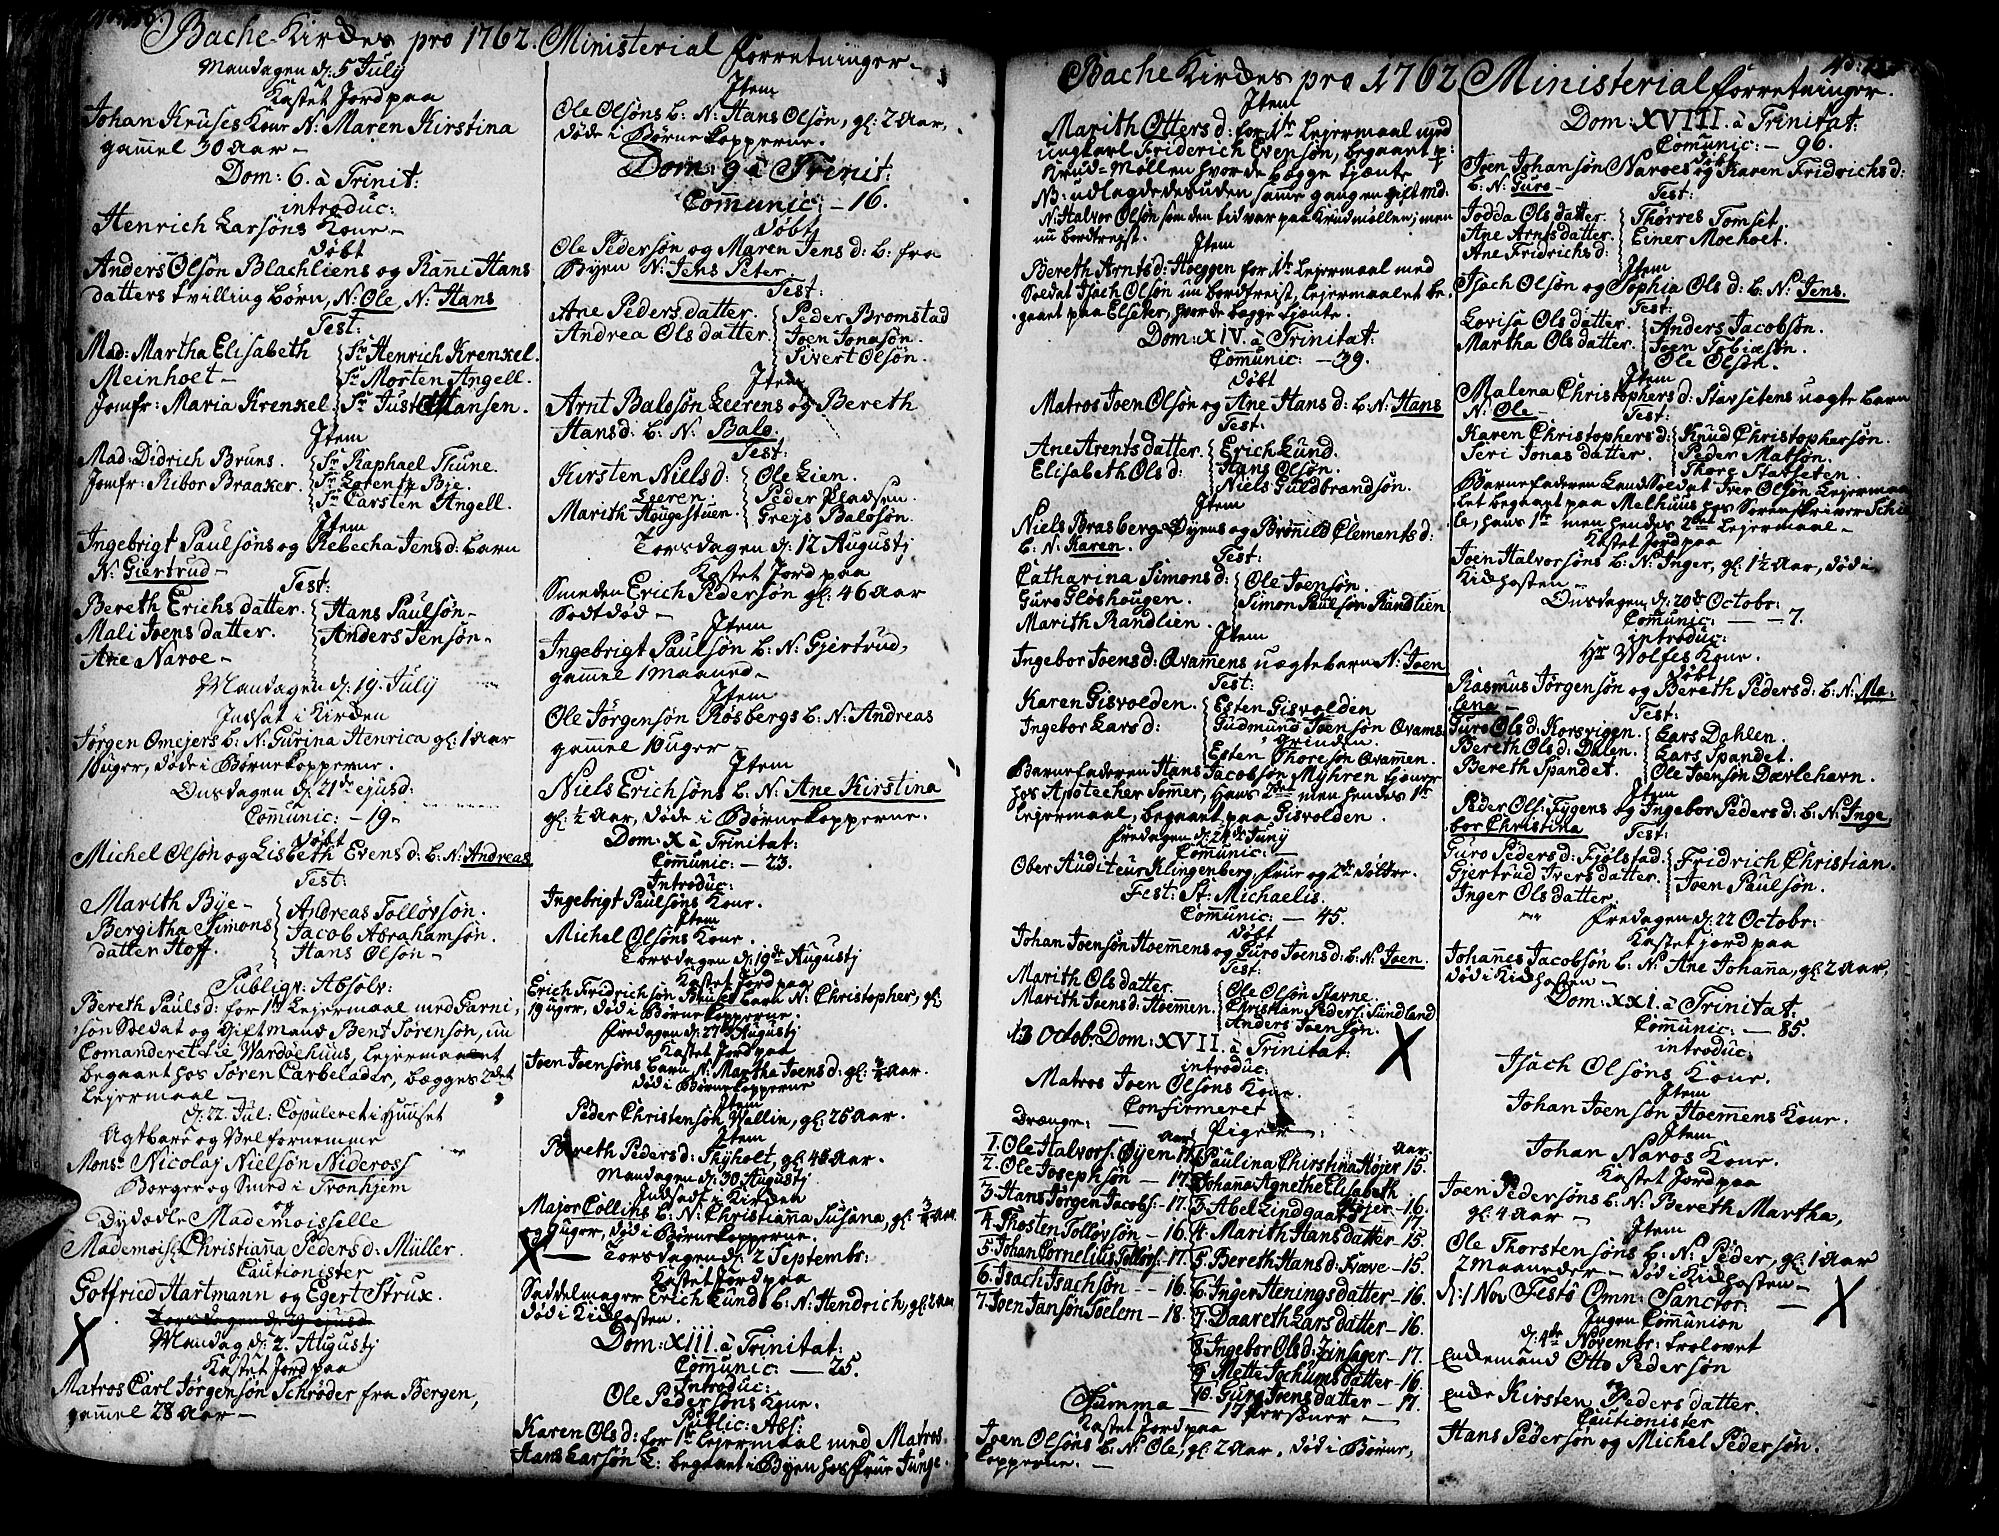 Bache Kirckes pro 1762. Ministerial forretninger
Mandagen d: 5 July
Kastet Jord paa
Johan Kruses Kone N: Maren Kirstina
gammel 30 Aar –
Dom: 6. à Trinit:
introduc:
Henrich Larsøns Kone –
Døbt
Anders Olsøn Blachliens og Ranni Hans
datters tvilling børn, N: Ole, N: Hans
Test:
Mad: Martha Elisabeth
Meinholt –
Jomfr: Maria Krenkel
Sr Henrich Krenkel.
Sr Morten Angell.
Sr Just Hansen.
Item
Mad: Didrich Bruns.
Jomfr: Ribor Braaker.
Sr Raphael Thune.
Sr Lorentz Bye.
Sr Carsten Angell.
Item
Ingebrigt Paulsøns og Rebecha Jensd: barn
N: Giertrud –
Test:
Bereth Erichsdatter.
Mali Joensdatter.
Ane Naroe –
Hans Paulsøn –
Anders Jensøn –
Mandagen d: 19. July
Indsat i Kircken
Jørgen Omejers b: N: Gurina Henrica gl: 1 Aar
10 uger, døde i Børnekopperne.
Onsdagen d: 21de ejusd:
Comunic: – 19 –
Døbt
Michel Olsøn og Lisbeth Evensd: b: N: Andreas
Test:
Marith Bye –
Bergitha Simons
datter Hoff.
Andreas Tolløvsøn.
Jacob Abrahamsøn.
Hans Olsøn –
Publiqv: Absolv:
Bereth Paulsd: for 1te Lejermaal med Garni,
søn Soldat og Giftmand Bent Sørensøn, nu
Comanderet til Wardøehuus, Lejermaalet
begaaet hos Søren Carbelader, begges 2det
Lejermaal –
d: 22. Jul: Copuleret i Huuset
Agtbare og Velfornemme
Monsr Nicolaj Nielsøn Nideross
Borger og Smed i Tronhjem
og
Dydædle Mademoisselle
Mademois: Christianna Pedersd: Müller.
Cautionister
Gotfried Hartmann og Egert Strux.
Torsdagen d: 29 ejusd
Mandag d: 2. Augustj
Kastet Jord paa
Matros Carl Jørgensøn Schrøder fra Bergen,
gammel 28 Aar –
Item
Ole Olsøns b: N: Hans Olsøn, gl: 2 Aar,
døde i Børnekopperne.
Dom: 9 à Trinit:
Comunic: – 16.
Døbt
Ole Pedersøn og Maren Jensd: b: fra
Byen N: Jens Peter.
Test:
Ane Pedersdatter.
Andrea Olsdatter
Peder Bromstad
Joen Jonasøn.
Sivert Olsøn.
Item
Arnt Balosøn Leerens og Bereth
Hansd: b: N: Balo.
Test:
Kirsten Nielsd:
Leeren.
Marith Hougestuen.
Ole Lien.
Peder Pladsen.
Grejs Balosøn.
Torsdagen d: 12 Augustj
Kastet Jord paa
Smeden Erich Pedersøn gl: 46 Aar
Sodt død –
Item
Ingebrigt Paulsøn b: N: Gjertrud,
gammel 1 Maaned –
Item
Ole Jørgensøn Røsbergs b: N: Andreas
gammel 10 uger –
Item
Niels Erichsøns b: N: Ane Kirstina
gl: ½ Aar, døde i Børnekopperne.
Dom: X à Trinitat:
Comunic: – 23.
Introduc:
Ingebrigt Paulsøns Kone.
Item
Michel Olsøns Kone.
Torsdagen d: 19de Augustj
Kastet Jord paa
Erich Fridrichsøn barn N: Christopher, gl:
19 uger, død i Børnekopperne.
Fredagen d: 27de Augustj
Kastet Jord paa
Joen Joensøns barn N: Martha Joensd: gl: ¾ Aar.
død i Børnekopperne
Item
Peder Christensøn Wellin, gl: 26 Aar.
Item
Bereth Pedersd: Thyholt, gl: 48 Aar.
Mandagen d: 30 Augustj
Indsadt i Kircken
Major Collins b: N: Christianna Susana, gl: ¾ Aar
og 9 uger, død i Børnekopperne.
Torsdagen d: 2 Septembr:
Kastet Jord paa
Saddelmager Erich Lunds b: N: Hendrich, gl: 2 Aar
død i Kickhosten.
Dom: XIII à Trinitat:
Comunic: — 25.
Introduc:
Ole Pedersøns Kone.
Public: Abs:
Karen Olsd: for 1te Lejermaal med Matros
Hans Larsøn L: begaaet i Byen hos frue Junge.
Bache Kirckes pro 1762 Ministerial forretninger.
Item
Marith Ottersd: for 1te Lejermaal med
ungkarl Friderich Evensøn, begaaet p:
Krud-Møllen hvor de begge tjænte
NB: udlagde desuden samme gangen gift md:
N: Halvor Olsøn som den tid var paa Krudmøllen, men
nu bortreist.
Item
Bereth Arntsd: Hoeggen for 1te Lejermaal med
Soldat Isach Olsøn nu bortreist, Lejermaalet be-
gaaet paa Elseter, hvor de begge tjente.
Dom: XIV. à Trinitat:
Comunic: – 39.
Døbt
Matros Joen Olsøn og Ane Hansd: b: N: Hans
Test:
Ane Arentsdatter.
Elisabeth Olsd:
Erich Lund.
Hans Olsøn.
Niels Guldbrandsøn.
Item
Niels Brasberg Øyens og Brønild Clementsd:
b: N: Karen.
Test:
Catharina Simonsd:
Guro Gløshougen.
Marith Randlien.
Ole Joensøn.
Simon Paulsøn Randlien
Item
Ingebor Joensd: Qvamens uægte barn N: Joen
Test:
Karen Gisvolden.
Ingebor Larsd:
Esten Gisvolden
Gudmund Joensøn Qvams
Grinden.
Esten Thoresøn Qvammen.
Barnefaderen Hans Jacobsøn Myhren tjener
hos Apotecher Sommer, Hans 2det men hendes 1te
Lejermaal, begaaet paa Gisvolden.
Fredagen d: 24de Juny
Comunic: –
Ober Auditeur Klingenberg, frue og 2de døttre.
Fest: St: Michaelis.
Comunic: – 45.
Døbt
Johan Joensøn Hoemens og Guro Joensd: b: N: Joen.
Test:
Marith Olsdatter.
Marith Joensd: Hoemmen.
Ole Olsøn Stavne.
Christian Peders: Sundland
Anders Joensøn.
d: 3 Octobr: Dom: XVII. à Trinitat:
introduc:
Matros Joen Olsøns Kone.
Confirmeret
Drænge: —
Aar
1. Ole Halvors: Øyen 17.
2. Ole Josephsøn — 17.
3. Hans Jørgen Jacobs: – 17.
4. Thosten Tolløvsøn, – 16.
5. Johan Cornelius Tollefs: 17.
6. Isach Isachsøn – – 16.
7. Joen Jansøn Joelem – 18.
Piger —
Aar.
1. Paulina Christina Højer 15.
2. Johanna Agnethe Elisabeth
Højer – 16.
3. Abel Lindgaard – 17
4. Marith Hansdatter – 15.
5. Bereth Hansd: Kræve – 15.
6. Inger Heningsdatter – 16.
7. Daareth Larsdatter – 16.
8. Ingebor Olsd: Zinsager – 17.
9. Mette Jochumsdatter – 16.
10. Guro Joensdatter – 17.
Summa — 17 Persohner —
Kastet Jord paa
Joen Olsøns b: N: Ole, gl: 2 Aar. død i Børne,
kopperne. —
Dom: XVIII. à Trinitat:
Comunic: – 96.
Døbt
Joen Johansøn Naroes og Karen Fridrichsd:
b: N: Guro –
Test:
Jodda Olsdatter.
Ane Arnsdatter.
Ane Fridrichsd:
Thørres Tomset
Einer Moeholt.
Item
Isach Olsøn og Sophia Olsd: b: N: Jens.
Test:
Lovisa Olsdatter.
Martha Olsdatter.
Anders Jacobsøn.
Joen Tobiæsøn.
Ole Olsøn.
Item
Malena Christophersd: Stavsetens uægte barn
N: Ole –
Test:
Karen Christophersd:
Seri Jonasdatter.
Knud Christophersøn.
Peder Matsøn.
Thore Stavseten.
Barnefaderen Land Soldat Iver Olsøn, Lejermaa,
let begaaet paa Melhuus hos Sorenskriver Schie,
le, hans 1te men hendes 2det Lejermaal –
Kastet Jord paa
Joen Halvorsøns b: N: Inger, gl: 1½ Aar, død i
Kickhosten –
Onsdagen d: 20de Octobr:
Comunic: — – 7.
introduc:
Hr Wolfes Kone.
Døbt
Rasmus Jørgensøn og Bereth Pedersd: b: N: Ma-
lena –
Test:
Guro Olsd: Korsvigen.
Bereth Olsd: Dalen.
Bereth Spandet.
Lars Dahlen.
Lars Spandet.
Ole Joensøn Dævlehavn.
Item
Peder Ols: Tygens og Ingebor Pedersd: b: N: Inge,
bor Christina
Test:
Guro Pedersd: Fjølstad.
Gjertrud Iversdatter.
Inger Olsdatter.
Fridrich Christian.
Joen Paulsøn.
Fredagen d: 22 Octobr:
Kastet jord paa
Johannes Jacobsøn b: N: Ane Johanna, gl: 2 Aar,
død i Kickhosten –
Dom: XXI. à Trinitat:
Comunic: — 85.
introduc:
Isach Olsøns Kone.
Item
Johan Joensøn Hoemmens Kone.
Item
Johan Naros Kone.
Kastet Jord paa
Joen Pedersøns b: N: Bereth Martha,
gl: 4 Aar –
Item
Ole Thorstensøns b: N: Peder, gl: 1 Aar
2 Maaneder – død i Kickhosten –
d: 1 Nov Festo Omn: Sanctor. —
Ingen Comunion
d: 4de Novembr: trolovet
Endemand Otto Pedersøn
og
Ende Kirsten Pedersdatter.
Cautionister
Hans Pedersøn og Michel Pedersøn.